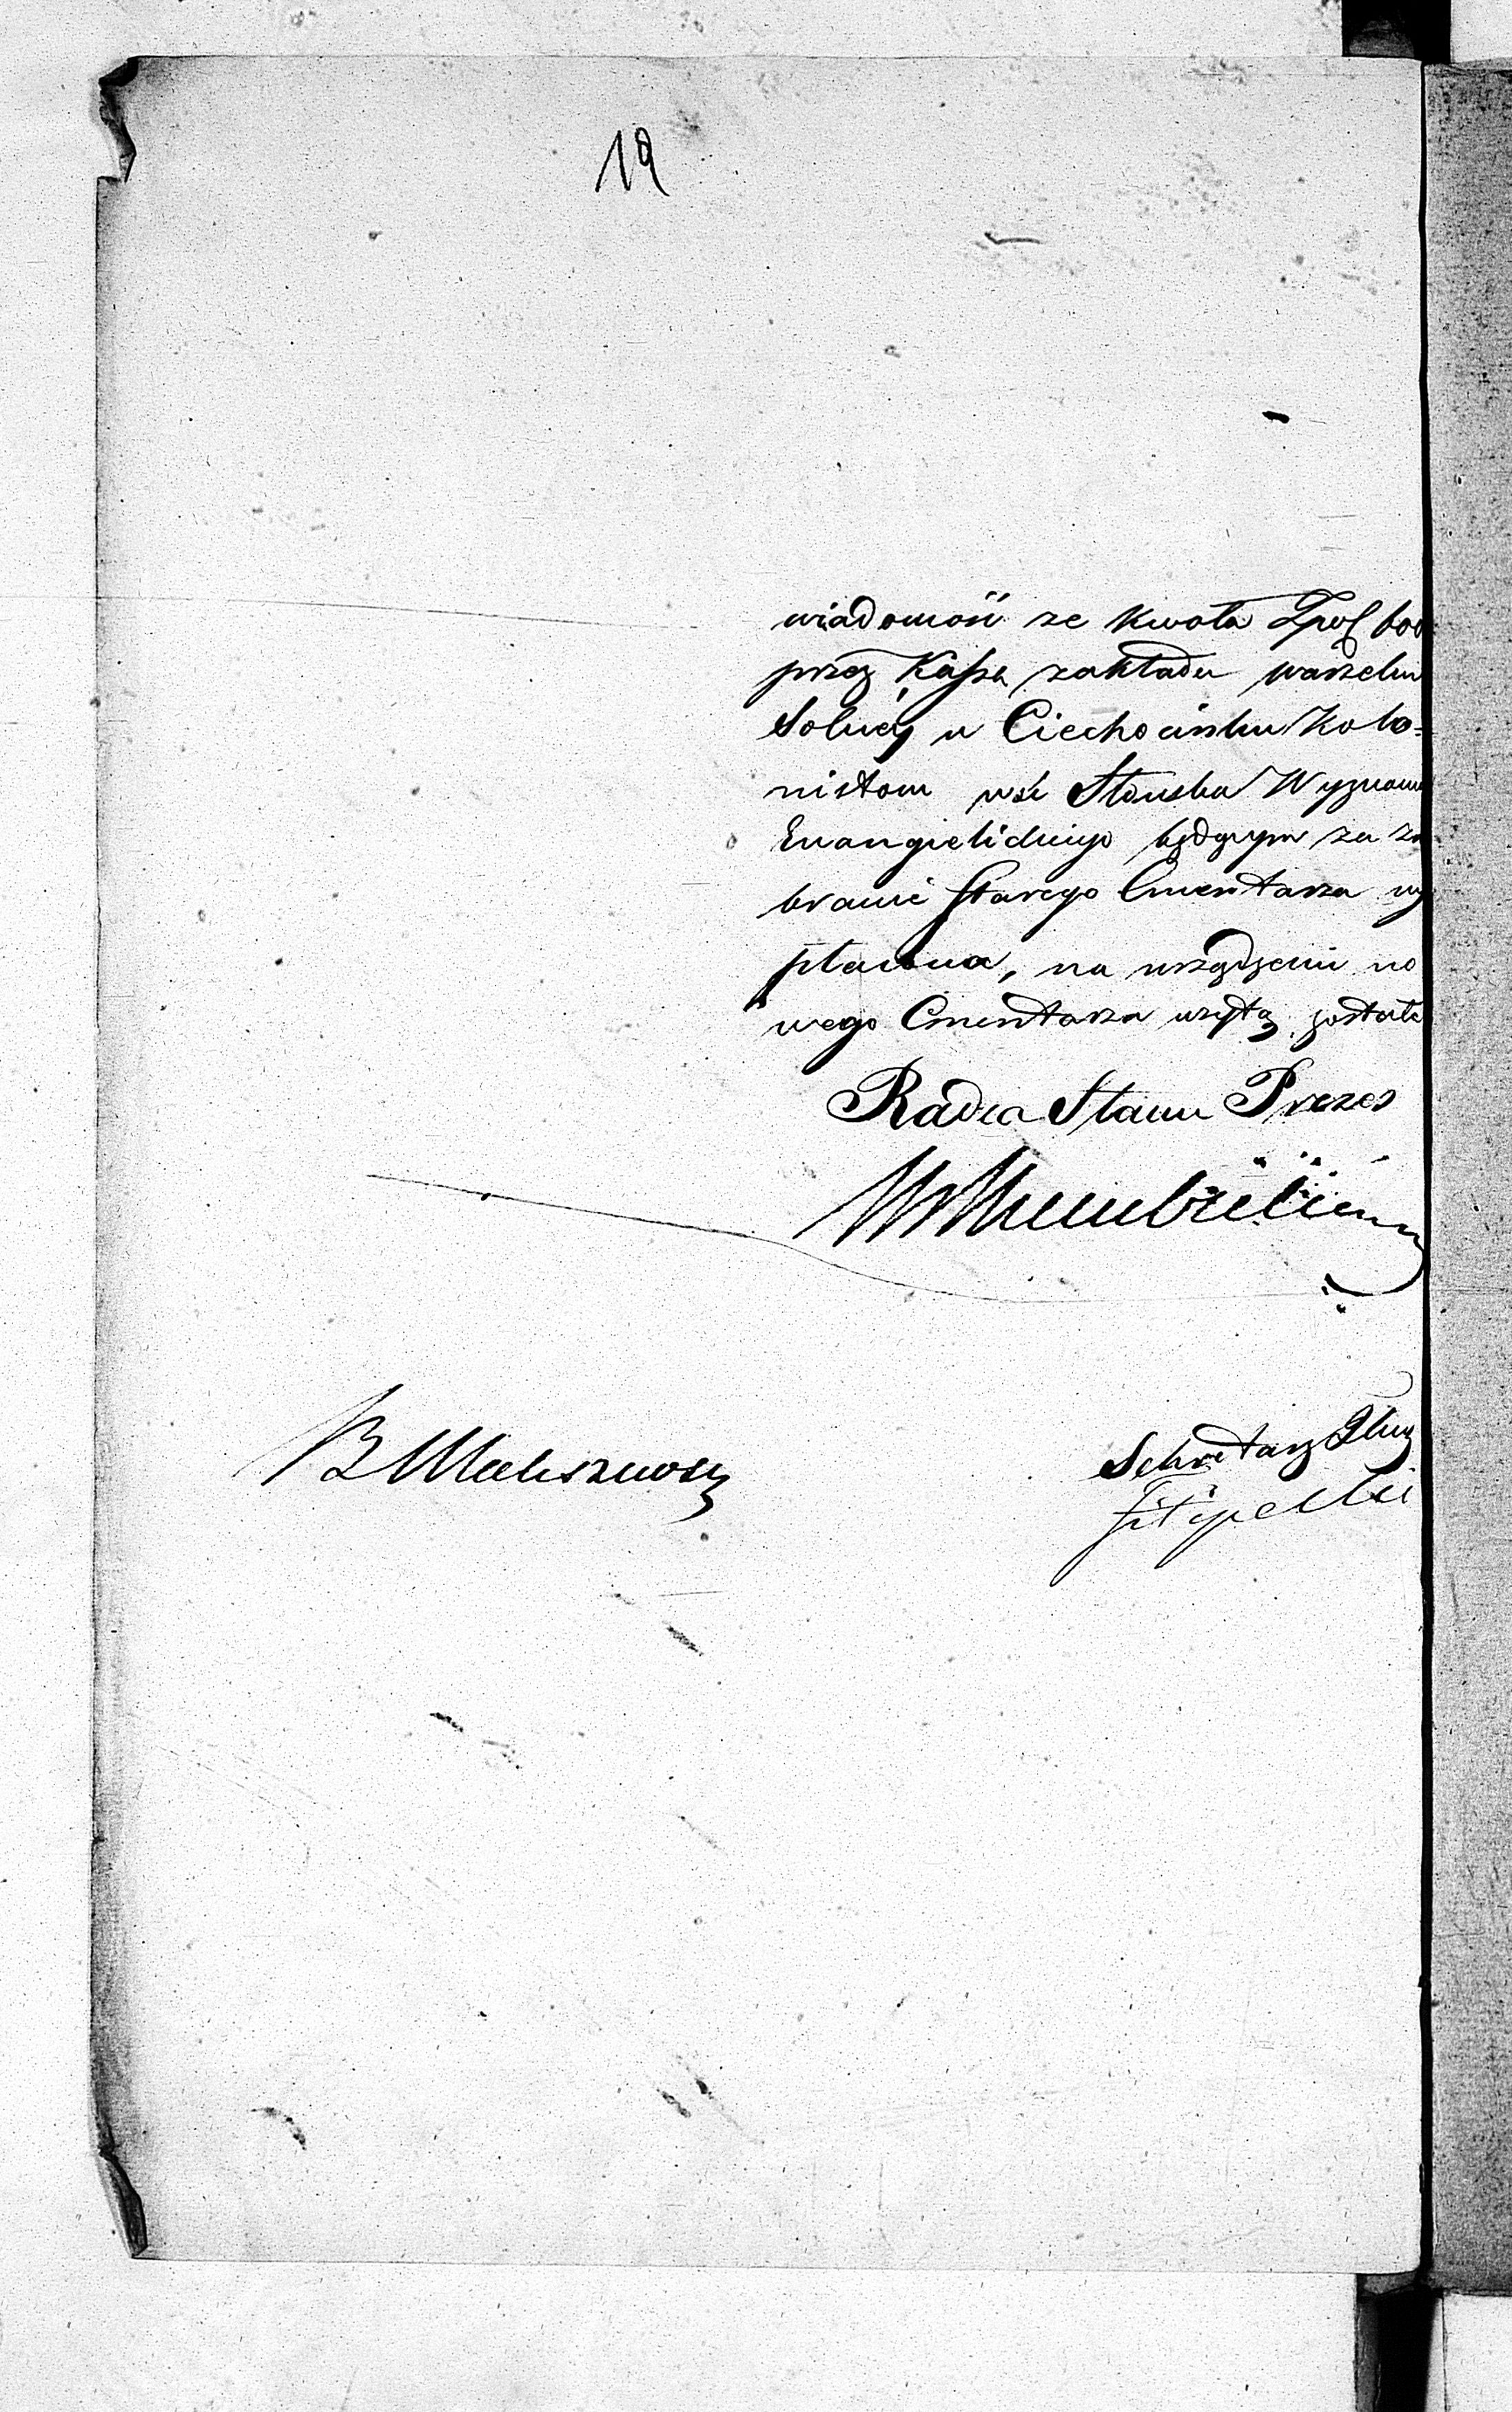 19
wiadomość ze kwota Zpol 600
przez Kassę zakładu warzelni
Solnéy w Ciechocinku Kolo=
nistom wsi Słońska Wyznani
Ewangielickiego będącym za za
branie starego Cmentarza wy
płacona, na urządzenie no
wego Cmentarza użytą została
Radca Stanu Prezes
B Maliszewski
Sekretarz Jlny
Filipecki